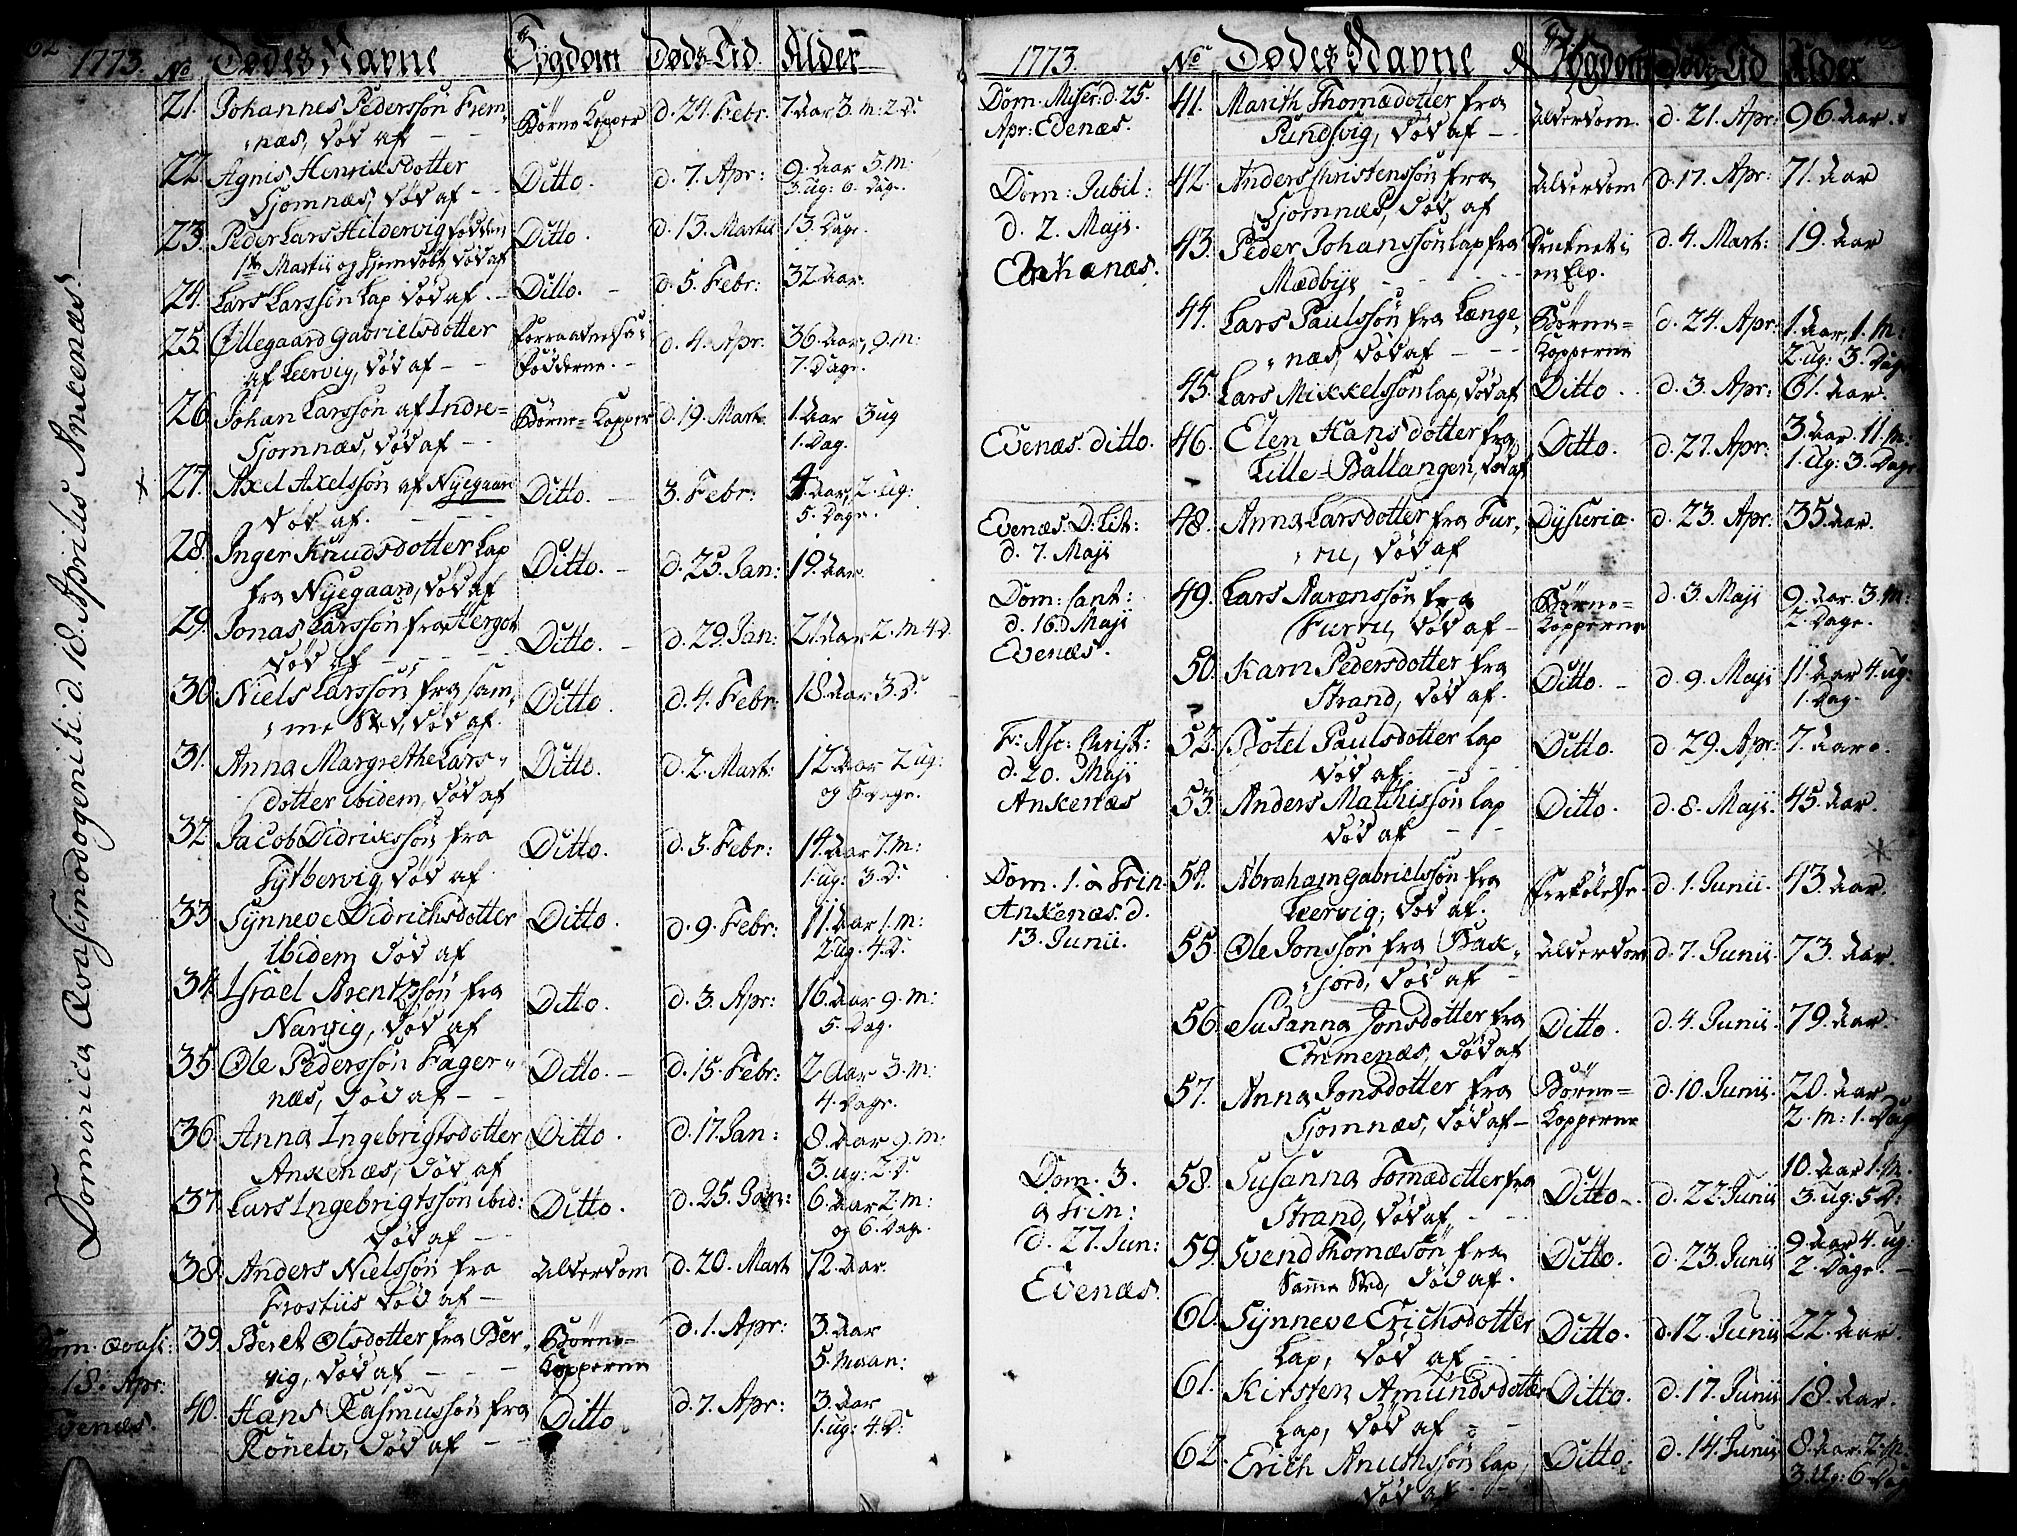 1773. No Dødes Navne Sygdom Døds-Tid. Alder
Dominica Qvasimodogeniti d. 18. Aprilis Ankenæs.
21. Johannes Pedersøn Frem-
næs, død af - - Børne Kopper d. 24. Febr. 7. Aar 3. M: 2. D.
22. Agnis Henriksdotter
Sjomnæs, død af - - Ditto. d. 7. Apr: 9. Aar 5. M.
3. ug: 6. Dage.
23. Peder Lars Hildervig fødden
1ste Martii og hjemdøbt død af Ditto. d. 13. Martii 13. Dage.
24. Lars Larssøn Lap død af. - Ditto. - d. 5. Febr: 32. Aar.
25. Øllegaard Gabrielsdotter
af Leervig, død af - - Forraadnelse i
Fødderne. - d. 4. Apr. 36 Aar, 9. M:
7. Dage.
26. Johan Larssøn af Indre=
Sjomnæs, død af - - Børne=Kopper d. 19. Mart: 1. Aar 3 ug
1. Dag.
27. Axel Axelssøn af Nyegaard
død af. - - - Ditto. - 3. Febr: 4. Aar, 2. ug:
5. Dage.
28. Inger Knudsdotter Lap
fra Nyegaard, død af Ditto. - d. 25. Jan: 19. Aar.
29. Jonas Larssøn fra Hergot
død af - - - Ditto. - d. 29. Jan: 21. Aar 2. M 4 D.
30. Niels Larssøn fra sam-
me Sted, død af. Ditto. d. 4. Febr: 18. Aar 3. D.
31. Anna Margrethe Lars-
dotter ibidem, død af Ditto. d. 2. Mart: 12 Aar 2 ug:
og 5 Dage.
32. Jacob Didrikssøn fra
Fytbervig, død af Ditto. d. 5. Febr: 14. Aar 7. M:
1. ug: 3. D.
33. Synneve Didrichsdotter
Ibidem død af Ditto. d. 9. Febr: 11. Aar 1. M:
2 ug. 4. D.
34. Israel Arentzsøn fra
Narvig, død af Ditto. d. 3. Apr: 16. Aar 9. M:
5. Dag.
35. Ole Pederssøn Fager-
næs, død af - - Ditto. - d. 15. Febr: 2 Aar 3. M:
4. Dage.
36. Anna Ingebrigtsdotter
Ankenæs, død af Ditto. d. 17. Jan: 8. Aar 9. M:
3. ug: 2. D.
37. Lars Ingebrigtssøn ibid:
død af - - Ditto. d. 25. Jan: 6. Aar 2. M:
og 6. Dage.
38. Anders Nielssøn fra
Frostiis død af - Alderdom d. 20. Mart 72. Aar.
Dom. Qvasi:
18. Apr:
Evenæs.
39. Beret Olsdotter fra Ber-
vig, død af - - Børne-
Kopperne d. 1. Apr: 3. Aar
5. Maan:
40. Hans Rasmussøn fra
Rønelv, død af - - Ditto d. 7. Apr: 3. Aar
1. ug: 4. D.
1773 No Dødes Navne Sygdom Døds-Tid Alder
Dom. Miser: d. 25.
Apr: Evenæs.
41. Marith Thomædotter fra
Pundsvig, død af - Alderdom. d. 21. Apr: 96. Aar.
Dom: Jubil:
d. 2. Maji.
Ankenæs.
42. Anders Christenssøn fra
Sjomnæs, død af Alderdom d. 17. Apr: 71. Aar
43. Peder Johanssøn Lap fra
Mædbye - - - Druknet i
en Elv. d. 4. Mart: 19. Aar
44. Lars Paulssøn fra Længe-
næs, død af - - Børne=
Kopperne d. 24. Apr: 1. Aar, 1. M:
2. ug: 3. Dage
45. Lars Mikkelssøn Lap, død af Ditto. d. 3. Apr: 61. Aar.
Evenæs ditto. 46. Elen Hansdotter fra
Lille-Ballangen, død af Ditto. d. 27. Apr: 3. Aar. 11. M:
1. ug: 3. Dage
Evenæs D. Lit:
d. 7. Maji
48. Anna Larsdotter fra Fur-
ru, død af Dysuria. d. 23. Apr: 35. Aar.
Dom: Cant:
d. 16. Maji
Evenæs.
49. Lars Aaronssøn fra
Furru, død af - Børne=
Kopperne d. 3. Maji 9. Aar. 3. M:
2. Dage.
50. Karn Pedersdotter fra
Strand, død af. Ditto. - d. 9. Maji 11. Aar 4. ug:
1. Dag.
F: Asc: Christi:
d. 20. Maji
Ankenæs
52. Botel Paulsdotter Lap
død af. - - Ditto. d 29. Apr: 7. Aar.
53. Anders Matthissøn Lap
død af - - Ditto. d. 8. Maji. 45. Aar
Dom. 1. a Trin.
Ankenæs. d.
13. Junii.
54. Abraham Gabrielssøn fra
Leervig, død af. Forkølelse. d. 1. Junii. 43. Aar.
55. Ole Jonssøn fra Bax-
fjord, død af - Alderdom d. 7. Junii. 73. Aar.
56. Susanna Jonsdotter fra
Emmenæs, død af Ditto. d. 4. Junii. 79. Aar.
57. Anna Jonsdotter fra
Sjomnæs, død af - Børne=
Kopperne d. 10. Junii. 20. Aar
2. M: 1. Dag
Dom. 3.
a Trin:
d. 27. Jun:
Evenæs.
58. Susanna Tomædotter fra
Strand, død af - - Ditto. - d. 22. Junii 10. Aar 1. M.
3. ug: 5. D:
59. Svend Thomæsøn fra
Samme Sted, død af. Ditto. d. 23. Junii 9. Aar 4. ug.
2. Dage. -
60. Synneve Erichsdotter
Lap, død af - - Ditto. d. 12. Junii 22. Aar.
61. Kirsten Amundsdotter
Lap, død af - - Ditto. d. 17. Junii 18. Aar.
62. Erich Anuthssøn Lap,
død af - - Ditto. d. 14. Junii 8. Aar. 2. M.
3. ug: 6. Dage